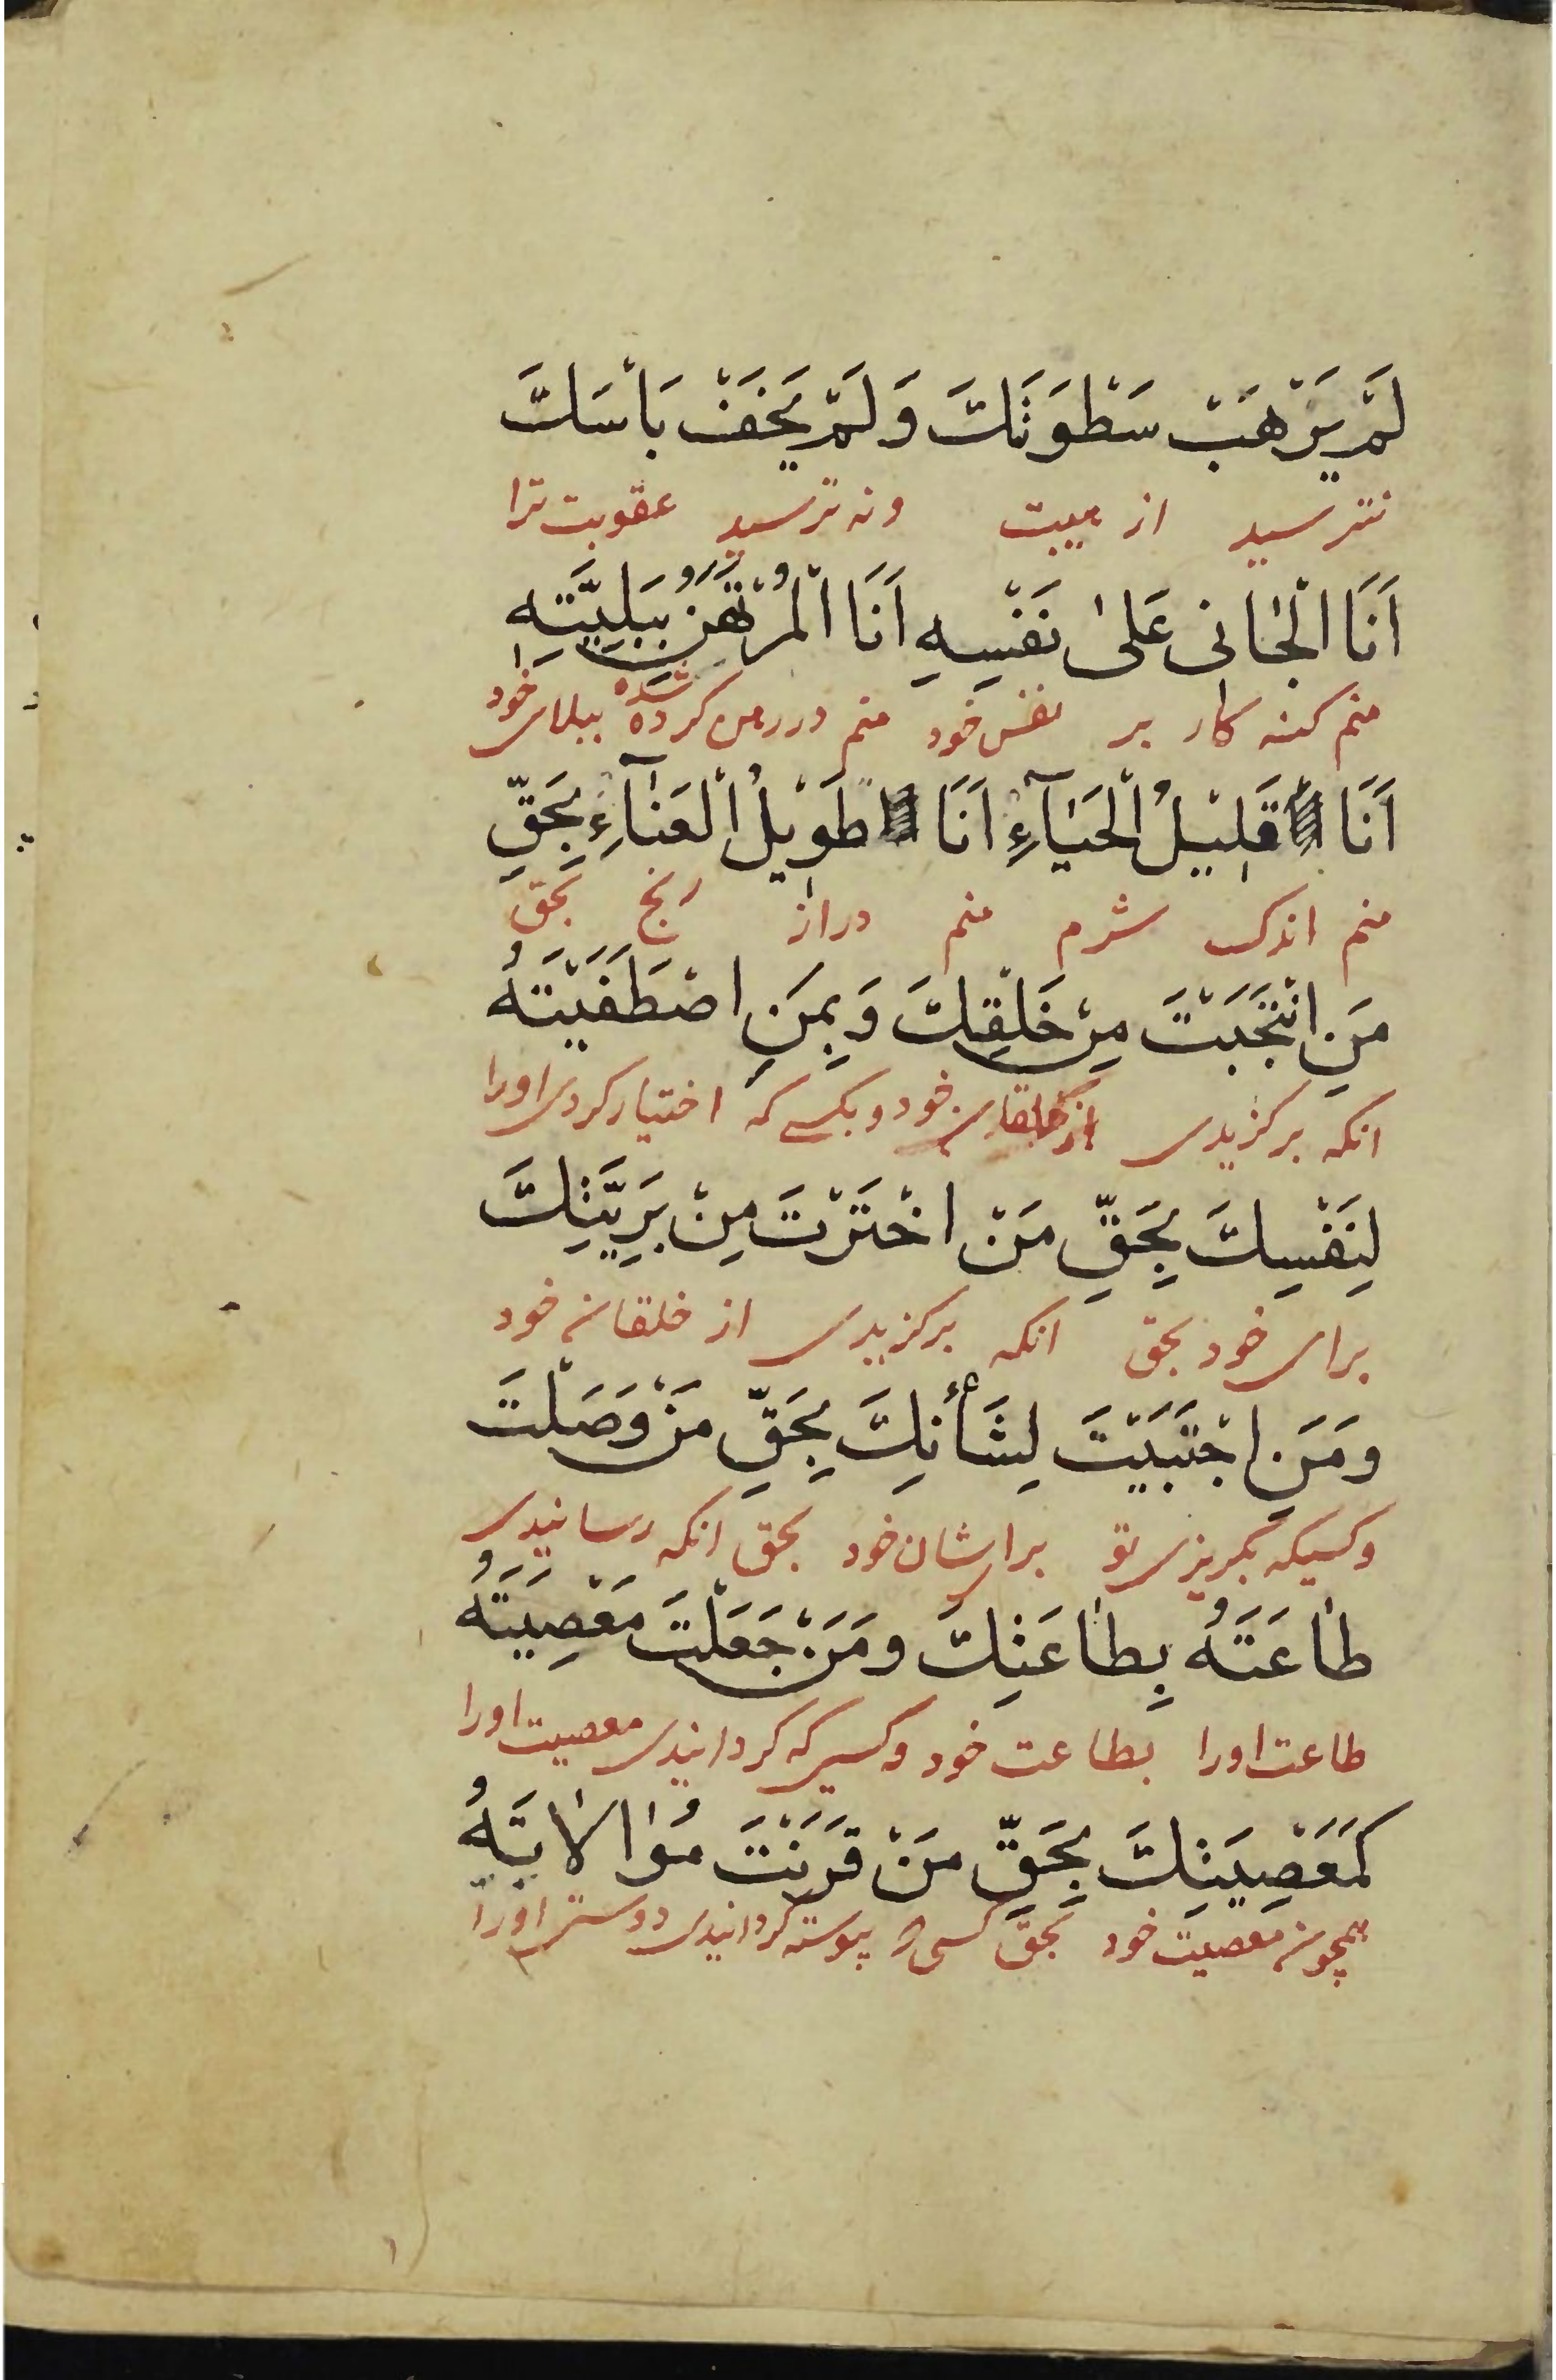 لَمْ يَرْهَبْ سَطْوَتَكَ وَلَمْ يَخَفْ بَأْسَكَ
نترسید از هیبت ونه ترسید عقوبت ترا
اَنَا الْجَانى عَلىٰ نَفْسِهِ اَنَا الْمُرْتَهَنُ بِبَلِيَّتِهِ
منم کنه کار بر نفس خود منم در رهن کرده شده ببلای خود
اَنَا قَلِيْلُ الْحَيَآءِ اَنَا طَوِيْلُ الْعَنَآءِ بِحَقِّ
منم اندک شرم منم دراز رنج بحق
مَنِ انْتَجَبْتَ مِنْ خَلْقِكَ وَبِمَنِ اصْطَفَيْتَهُ
انکه برکزیدی از خلقان خود و بکسے که اختیار کردی اورا
لِنَفْسِكَ بِحَقِّ مَنْ اخْتَرْتَ مِنْ بَرِيَّتِكَ
برای خود بحق انکه برکزیدی از خلقان خود
ومَنِ اجْتَبَيْتَ لِشَأْنِكَ بِحَقِّ مَنْ وَصَلْتَ
وکسیکه بکریزی تو برای شان خود بحق انکه رسانیدی
طَاعَتَهُ بِطَاعَتِكَ ومَنْ جَعَلْتَ مَعْصِيَتَهُ
طاعت اورا بطاعت خود وکسی که کردانیدی معصیت اورا
كَمَعْصِيَتِكَ بِحَقِّ مَنْ قَرَنْتَ مُوَالَاتَهُ
همچون معصیت خود بحق کسی که پیوسته کردانیدی دوستی اورا